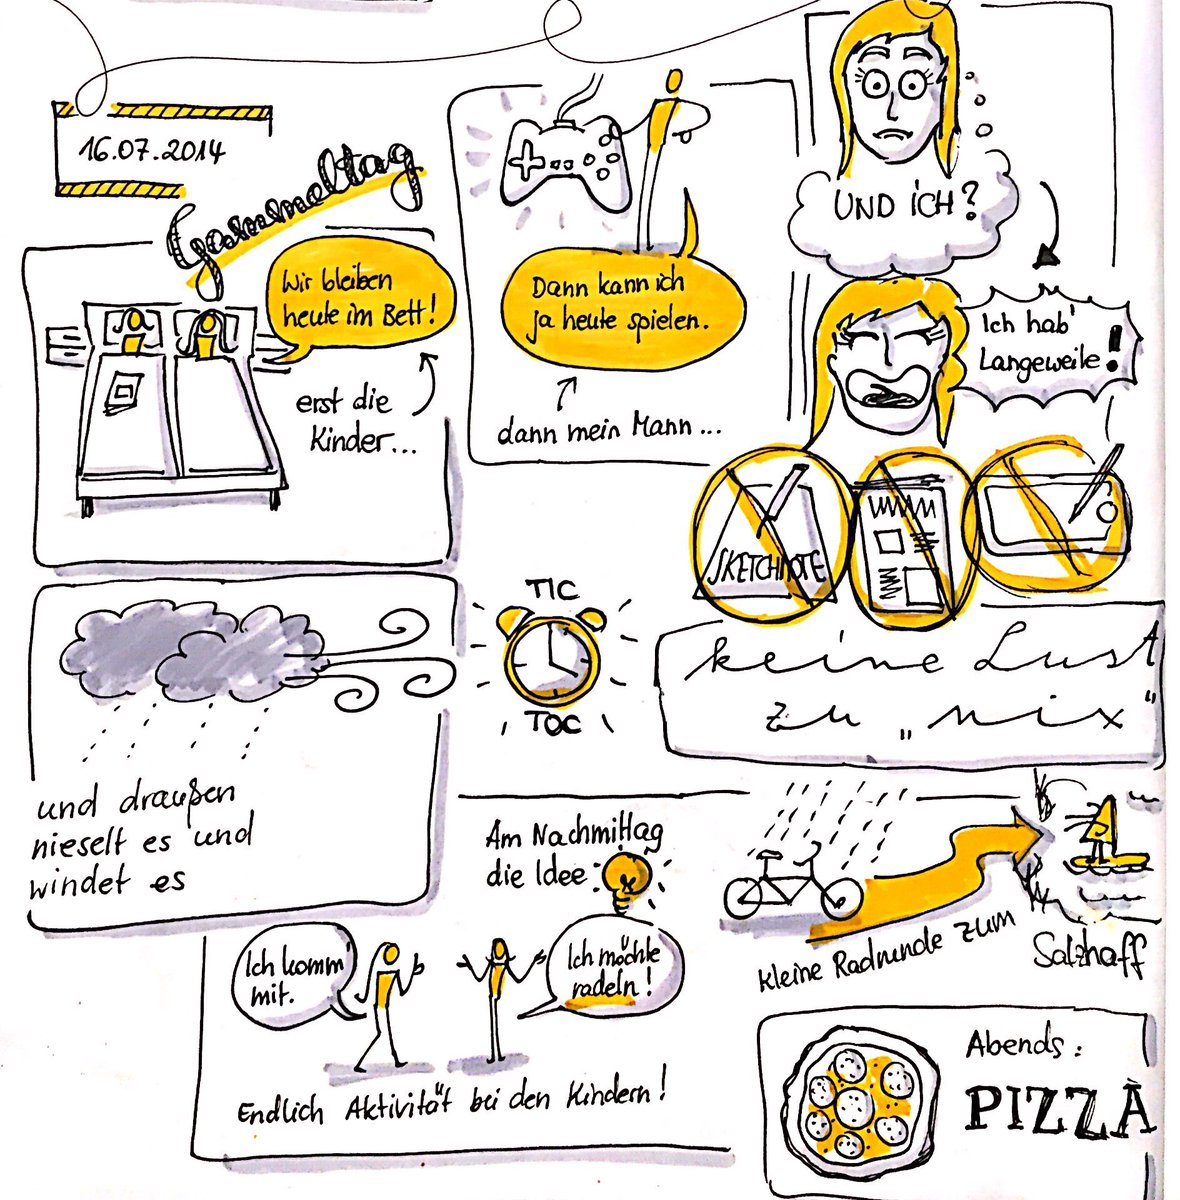 16.07.2014
Gammeltag
Wir bleiben
heute im Bett!
erst die
Kinder...
Dann kann ich
ja heute spielen.
dann mein Mann...
UND ICH?
Ich hab'
Langeweile!
SKETCHNOTE
keine Lust
zu "nix"
und draußen
nieselt es und
windet es
TIC
TOC
Am Nachmittag
die Idee
Ich komm
mit.
Ich möchte
radeln!
Endlich Aktivität bei den Kindern!
kleine Radrunde zum
Salzhaff
Abends:
PIZZA